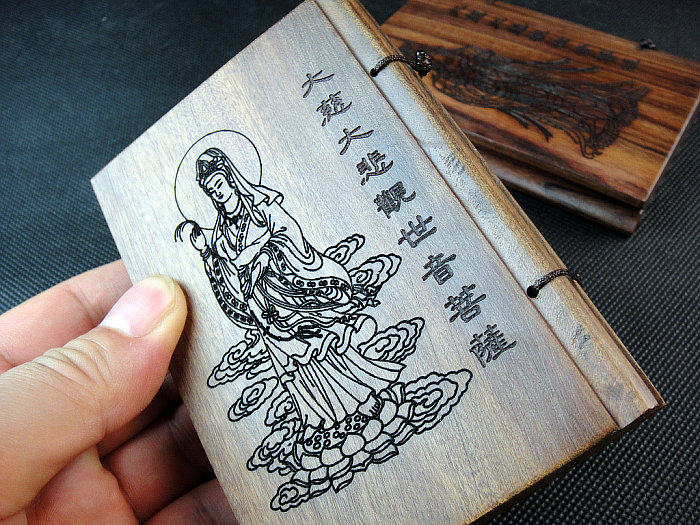 大慈大悲觀世音菩薩